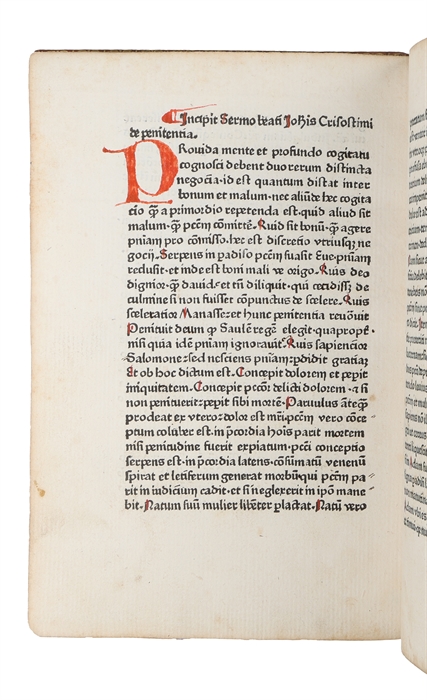 Incipit Sermo beati Johis Crisostimi
de penitentia.
PRouida mente et profundo cogitatu
cognosci debent duo rerum distincta
negocia·id est quantum distat inter
bonum et malum·nec aliud hec cogita
cio q̄ a primordio repetenda est·quid aliud sit
malum·q̄ pctm̄ cōmittē·Quid sit bonū·q̄ agere
pniam pro cōmisso·hec est discretio vtriusqȝ ne
gocij·Serpens in padiso pctm̄ suasit Eue·pniam
reclusit·et inde est boni mali ve origo·Quis deo
dignior·q̄ dauid·et tn̄ diliquit·qui cecidissȝ de
culmine si non fuisset cōpunctus de scelere·Quis
sceleratior Manasse·et hunc penitentia reuouit
Penituit deum q̄ Saulē regē elegit·quapropt̄
nisi quia idē pniam ignorauit·Quis sapiencior
Salomone·sed nesciens pniam·pdidit gratiaȝ
et ob hoc dictum est·Concepit dolorem et pepit
iniquitatem·Concepit pctor·delicti dolorem·⁊ si
non penituerit·pepit sibi mortē·Paruulus anteq̄
prodeat ex vtero·dolor est mr̄i·pctm̄ vero cōce
ptum coluber est·in pcordia hoīs parit mortem
nisi penitudine fuerit expiatum·pcti conceptio
serpens est·in pcordia latens·cōsūmatū venenū
spirat et letiferum generat morbū·qui pctm̄ pa⸗
rit in iudicium cadit·et si neglexerit in ipō mane⸗
bit·Natum suū mulier libēter placlat·Natū vero